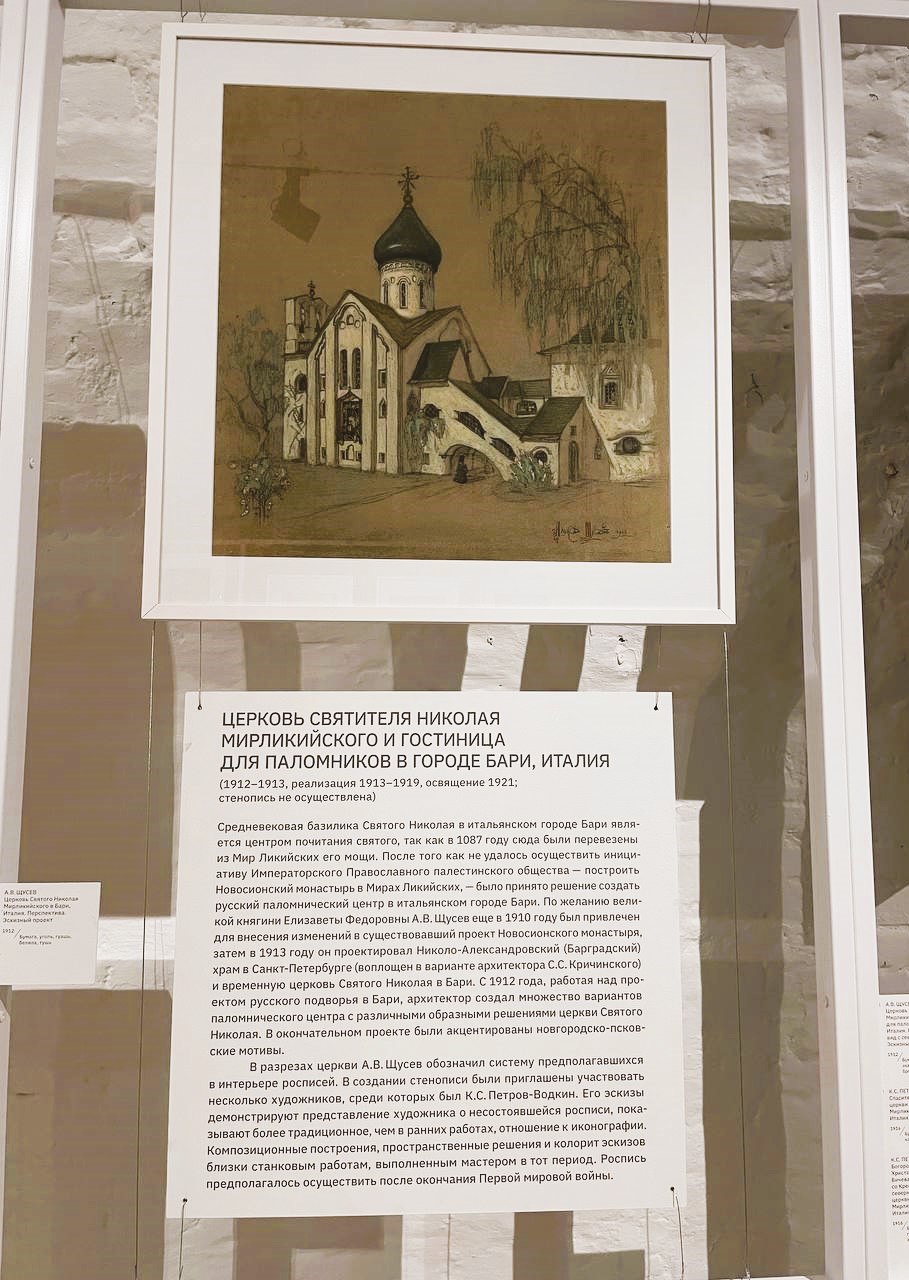 ЦЕРКОВЬ СВЯТИТЕЛЯ НИКОЛАЯ
МИРЛИКИЙСКОГО И ГОСТИНИЦА
ДЛЯ ПАЛОМНИКОВ В ГОРОДЕ БАРИ, ИТАЛИЯ
(1912–1913, реализация 1913–1919, освящение 1921;
стенопись не осуществлена)
Средневековая базилика Святого Николая в итальянском городе Бари явля-
ется центром почитания святого, так как в 1087 году сюда были перевезены
из Мир Ликийских его мощи. После того как не удалось осуществить иници-
ативу Императорского Православного палестинского общества — построить
Новосионский монастырь в Мирах Ликийских, — было принято решение создать
русский паломнический центр в итальянском городе Бари. По желанию вели-
кой княгини Елизаветы Федоровны А.В. Щусев еще в 1910 году был привлечен
для внесения изменений в существовавший проект Новосионского монастыря,
затем в 1913 году он проектировал Николо-Александровский (Барградский)
храм в Санкт-Петербурге (воплощен в варианте архитектора С.С. Кричинского)
и временную церковь Святого Николая в Бари. С 1912 года, работая над про-
ектом русского подворья в Бари, архитектор создал множество вариантов
паломнического центра с различными образными решениями церкви Святого
Николая. В окончательном проекте были акцентированы новгородско-псков-
ские мотивы.
В разрезах церкви А.В. Щусев обозначил систему предполагавшихся
в интерьере росписей. В создании стенописи были приглашены участвовать
несколько художников, среди которых был К.С. Петров-Водкин. Его эскизы
демонстрируют представление художника о несостоявшейся росписи, пока-
зывают более традиционное, чем в ранних работах, отношение к иконографии.
Композиционные построения, пространственные решения и колорит эскизов
близки станковым работам, выполненным мастером в тот период. Роспись
предполагалось осуществить после окончания Первой мировой войны.
А.В. ЩУСЕВ
Церковь Святого Николая
Мирликийского в Бари.
Италия. Перспектива.
Эскизный проект
1912
Бумага, уголь, гуашь,
белила, тушь